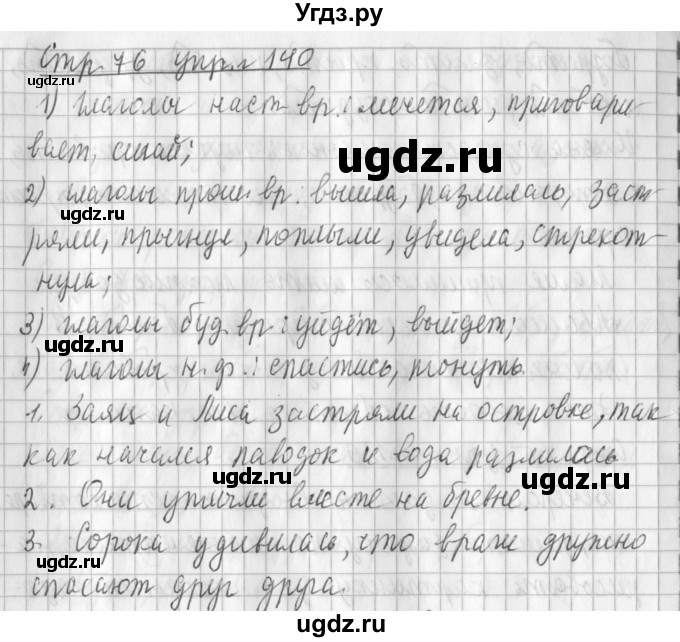 Угдз.ру
Стр. 76 упр. 140
1) глаголы наст вр.: мечется, приговари-
вает, сигай;
ugdz.ru
ugdz.ru
2) глаголы прош вр.: вышла, разлилась, заст-
ряли, прыгнул, поплыли, увидела, стрекот-
нула;
3) глаголы буд вр: уйдёт, выйдет;
ugdz.ru
4) глаголы н. ф.: спастись, тонуть
1. Заяц и Лиса застряли на островке, так
как начался паводок и вода разлилась
ugdz.ru
2. Они уплыли вместе на бревне.
ugdz.ru
3. Сорока удивилась, что враги дружно
спасают друг друга.
ugdz.ru
ugdz.ru